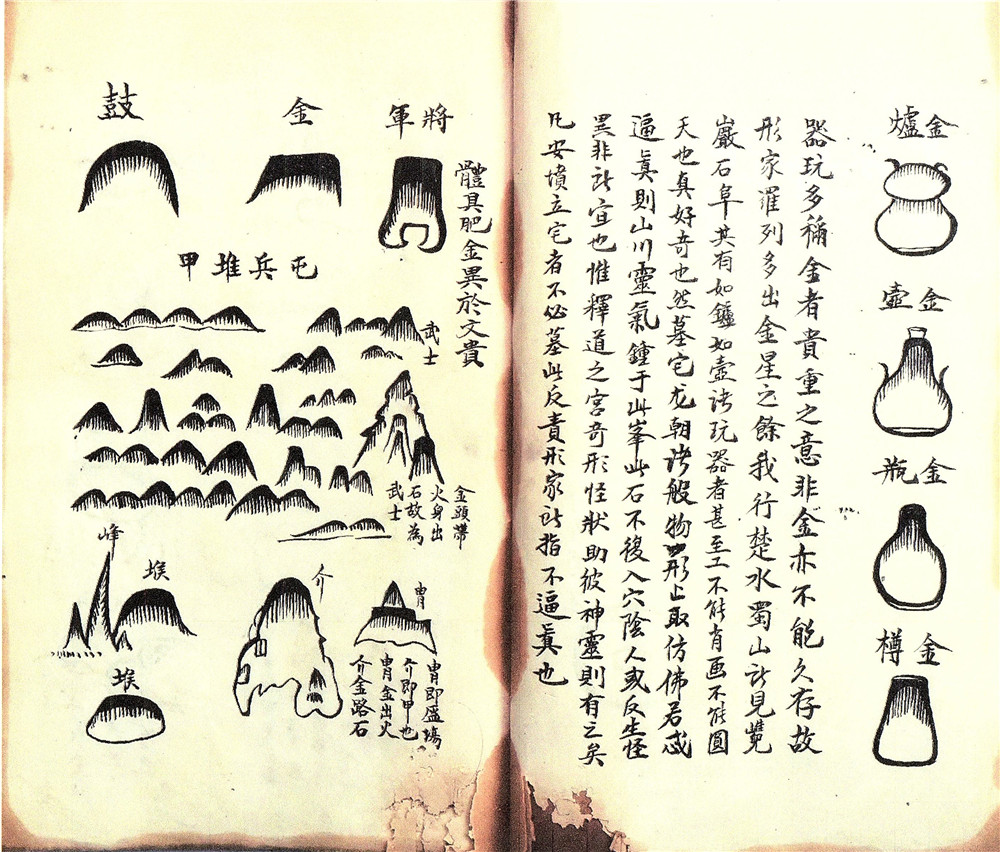 金爐
金壺
金瓶
金樽
器玩多稱金者貴重之意非金亦不能久存故
形家羅列多出金星之餘我行楚水蜀山所見巉
巖石阜其有如鑪如壺諸玩器者甚至工不能肖画不能圓
天也真好奇也然墓宅龙朝諸般物形上取仿佛若或
逼眞則山川靈氣鍾于此峯此石不復入穴陰人或反生怪
異非所宜也惟釋道之宮奇形怪狀助彼神靈則有之矣
凡安墳立宅者不必墓此反責形家所指不逼眞也
將軍
體具肥金異於文貴
金
鼓
屯兵堆甲
武士
金頭帶
火身出
石故為
武士
胄
胄即盔
介即甲也
胄金出火
介金路石
介
堠
峰
堠